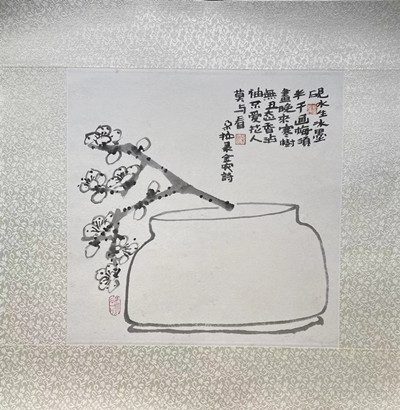 硯水生冰墨
半干画梅須
畫晚來寒樹
無丑态香沾
袖不愛花人
莫与看
朵拉录金农詩